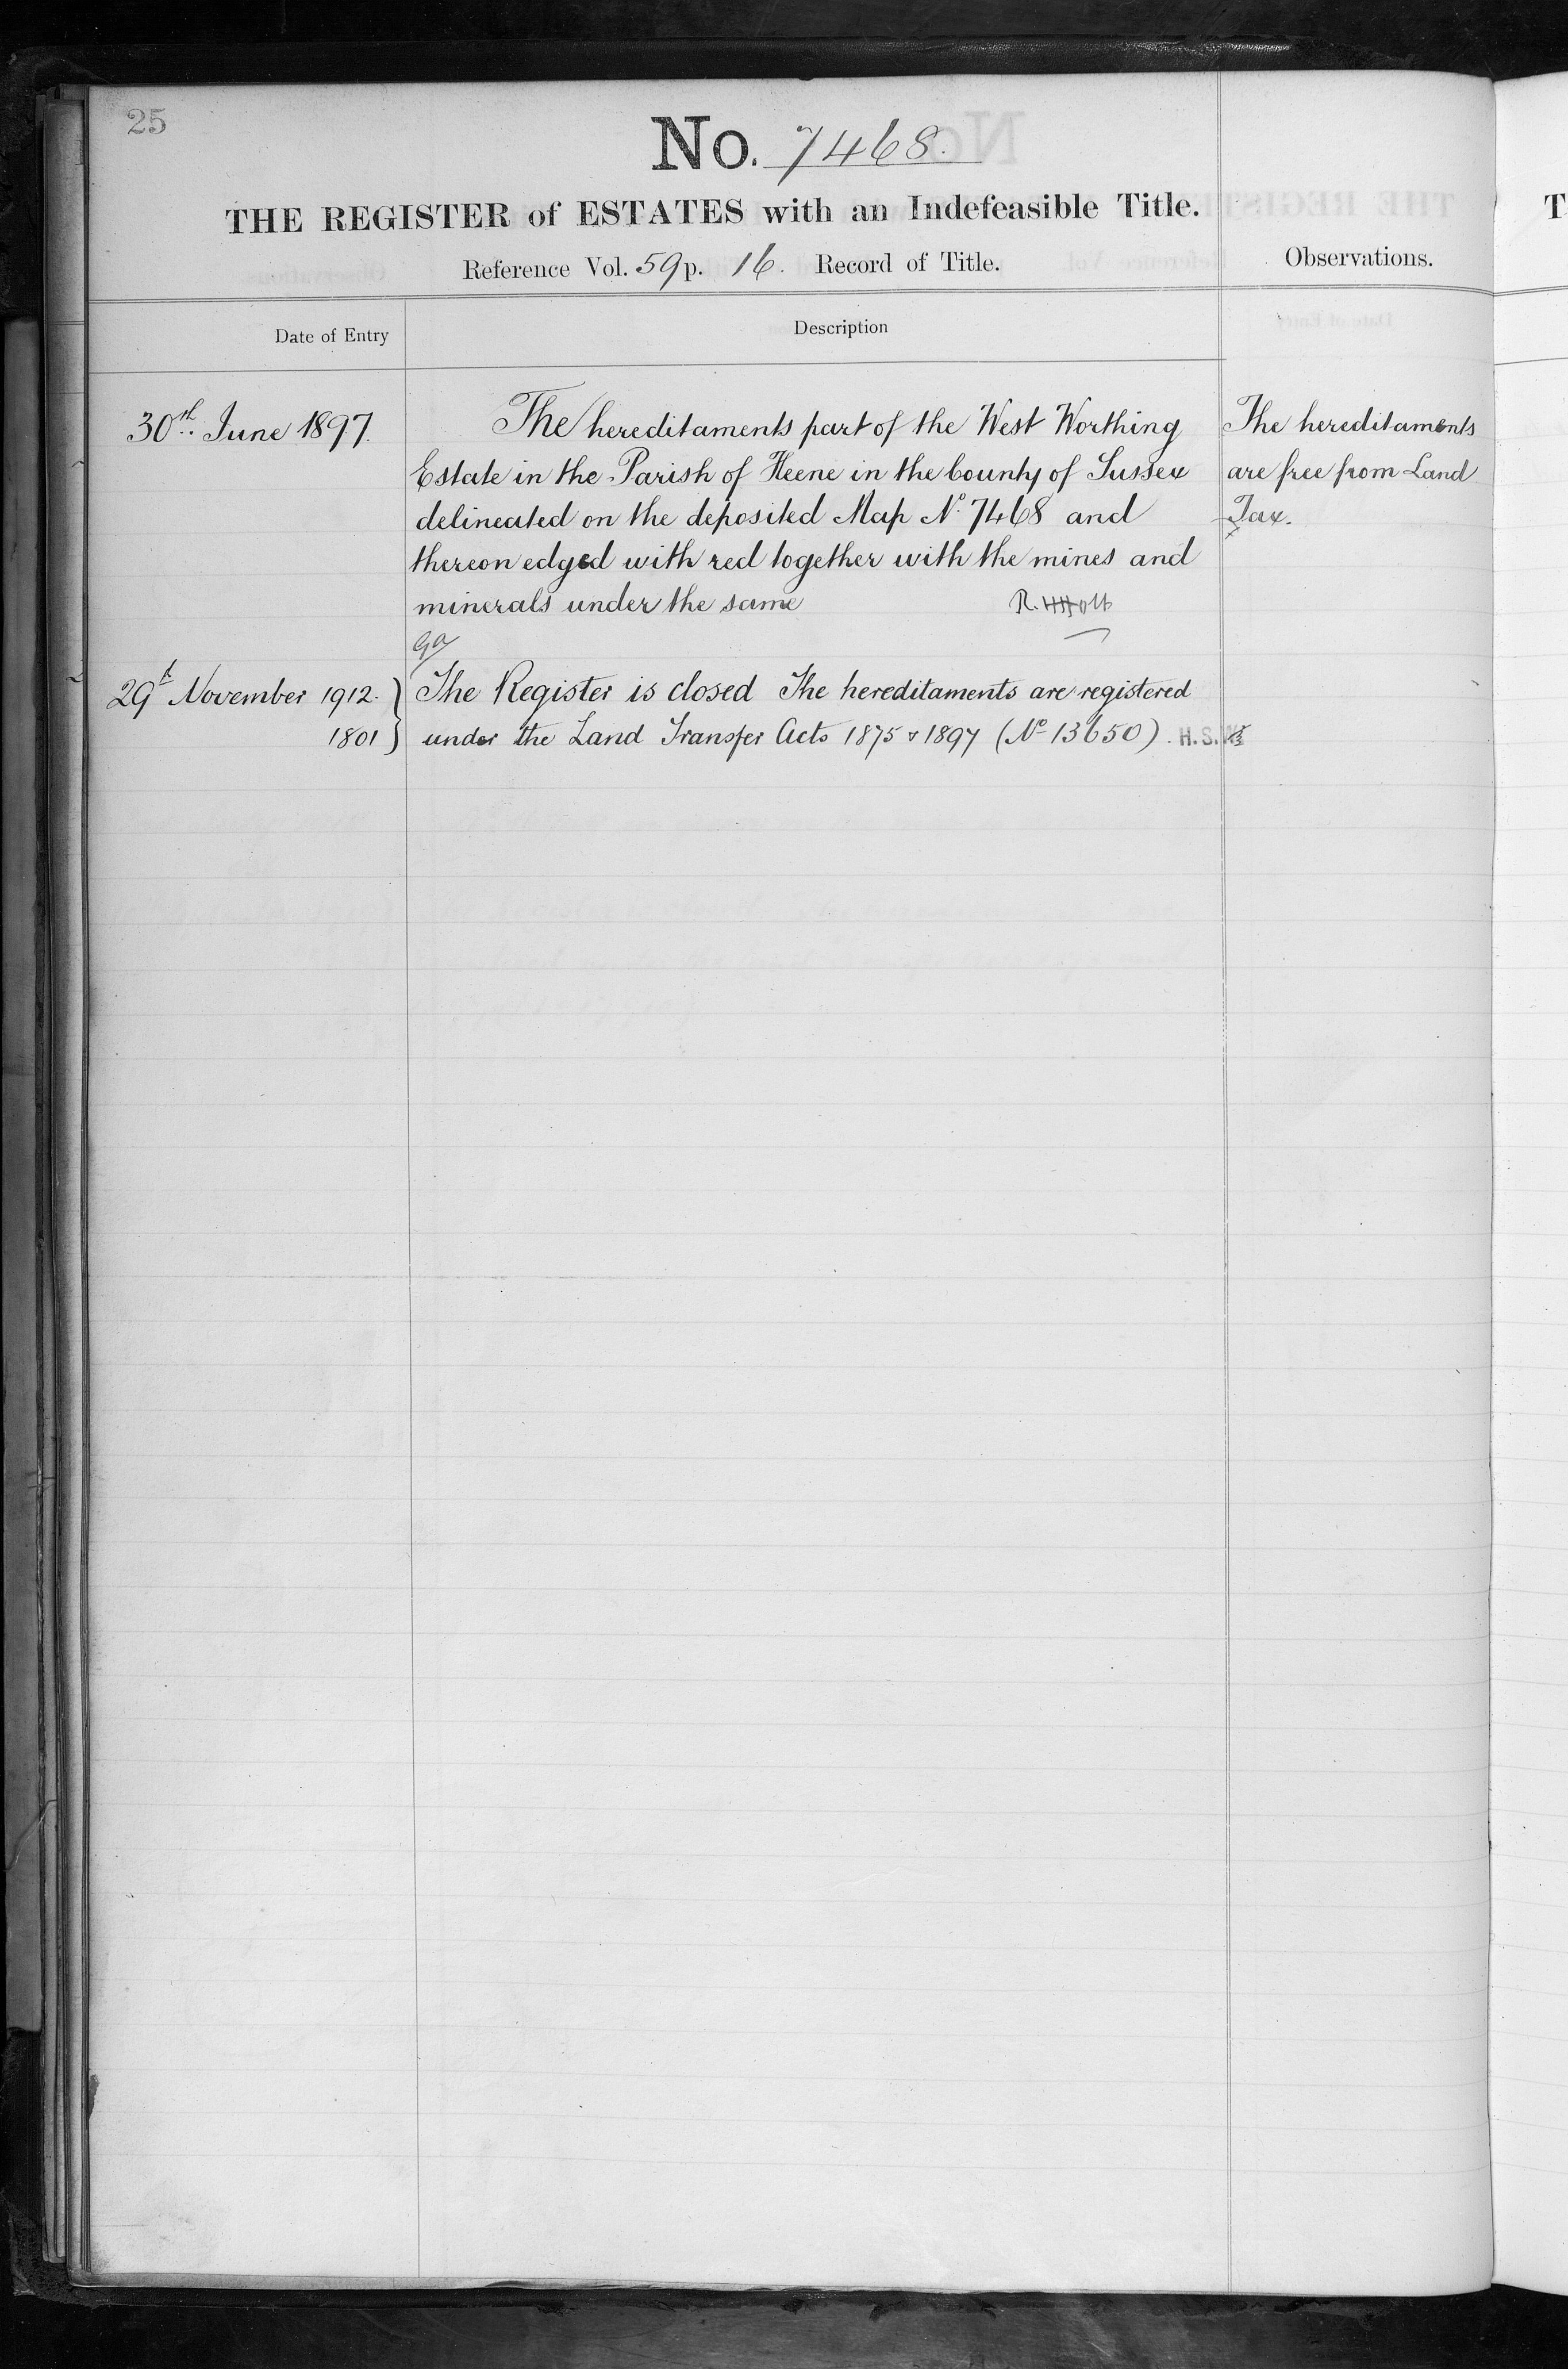 25
No. 7468.
THE REGISTER of ESTATES with an Indefeasible Title.
Reference Vol. 59 p. 16. Record of Title.
Observations.
Date of Entry
Description
30th. June 1897.
The hereditaments part of the West Worthing
Estate in the Parish of Heene in the County of Sussex
delineated on the deposited Map No. 7468 and
thereon edged with red together with the mines and
minerals under the same
The hereditaments
are free from Land
Tax.
29t November 1912.
1801
The Register is closed The hereditaments are registered
under the Land Transfer Acts 1875 & 1897 (No 13650). H.S.